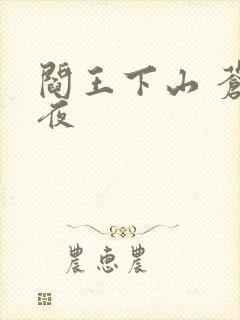 閻王下山 蒼
夜
農恵農